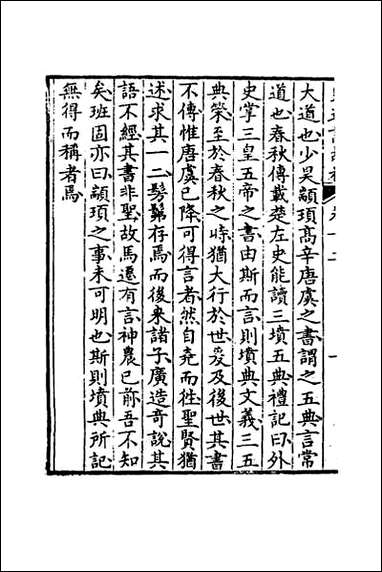 大道也少昊顓頊髙辛唐虞之書謂之五典言常
道也春秋傳載楚左史能讀三墳五典禮記曰外
史掌三皇五帝之書由斯而言則墳典文義三五
典䇿至於春秋之時猶大行於世爰及後世其書
不傳惟唐虞已降可得言者然自堯而徃聖賢猶
述求其一二髣髴存焉而後來諸子廣造竒說其
語不經其書非聖故馬遷有言神農已前吾不知
矣班固亦曰顓頊之事未可明也斯則墳典所記
無得而稱者焉